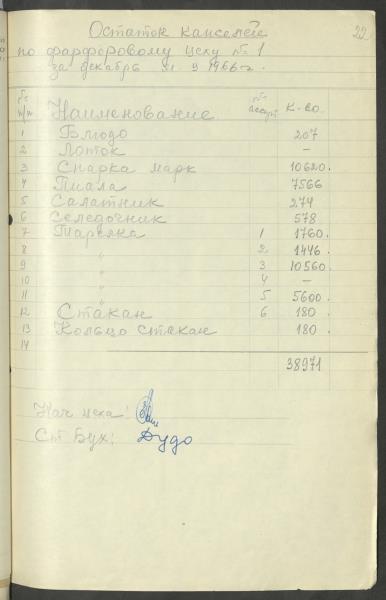 22
Остаток капселей
по фарфоровому цеху № 1
за декабрь м-ц 1966 г.
№ п/п Наименование № ассорт к-во.
1 Блюдо 207
2 Лоток —
3 Спарка марк 10620.
4 Пиала 7566
5 Салатник 274
6 Селедочник 578
7 Тарелка 1 1760.
8 " 2 1446.
9 " 3 10560.
10 " 4 —
11 " 5 5600.
12 Стакан 6 180.
13 Кольцо стакан 180.
14
38971
Нач цеха:
Ст Бух: Дудо